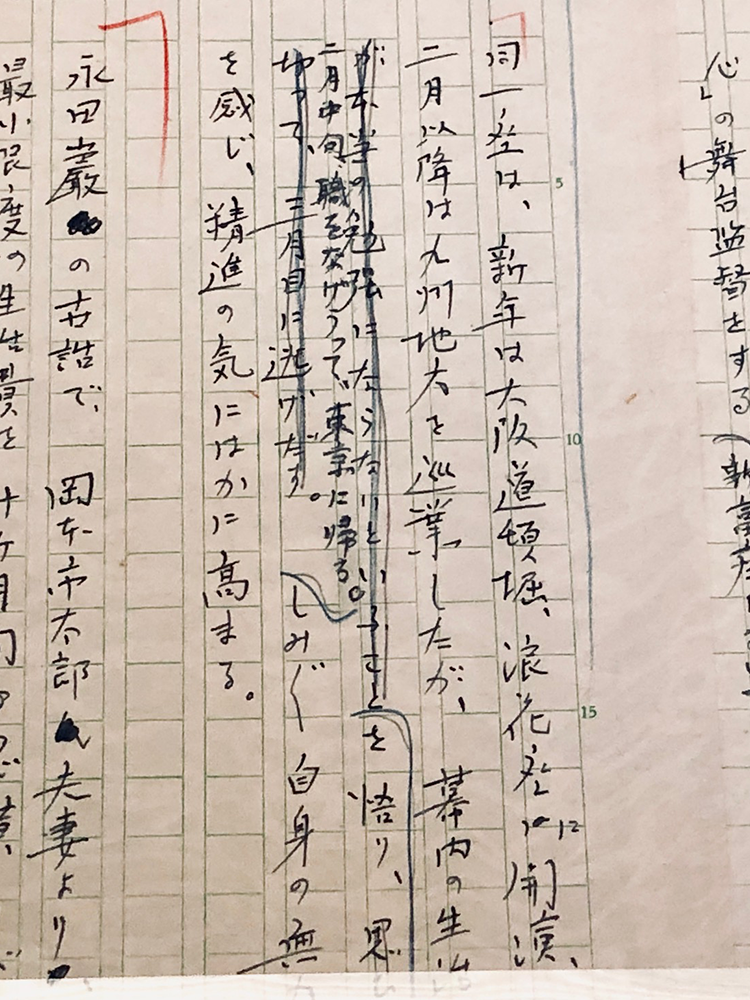 心」の舞台監督をする
同一座は、新年は大阪道頓堀、浪花座に開演、
二月以降は九州地方を巡業したが、幕内の生活
が本当の勉強にならないということを悟り、思
二月中旬、職をなげうって、東京に帰る。
切って、三月目に逃げだす。しみ〴〵自身の無
を感じ、精進の気にはかに高まる。
永田巖の古諧で、岡本市太郎夫妻より
最小限度の生活費を十ヶ月間
5
10
15